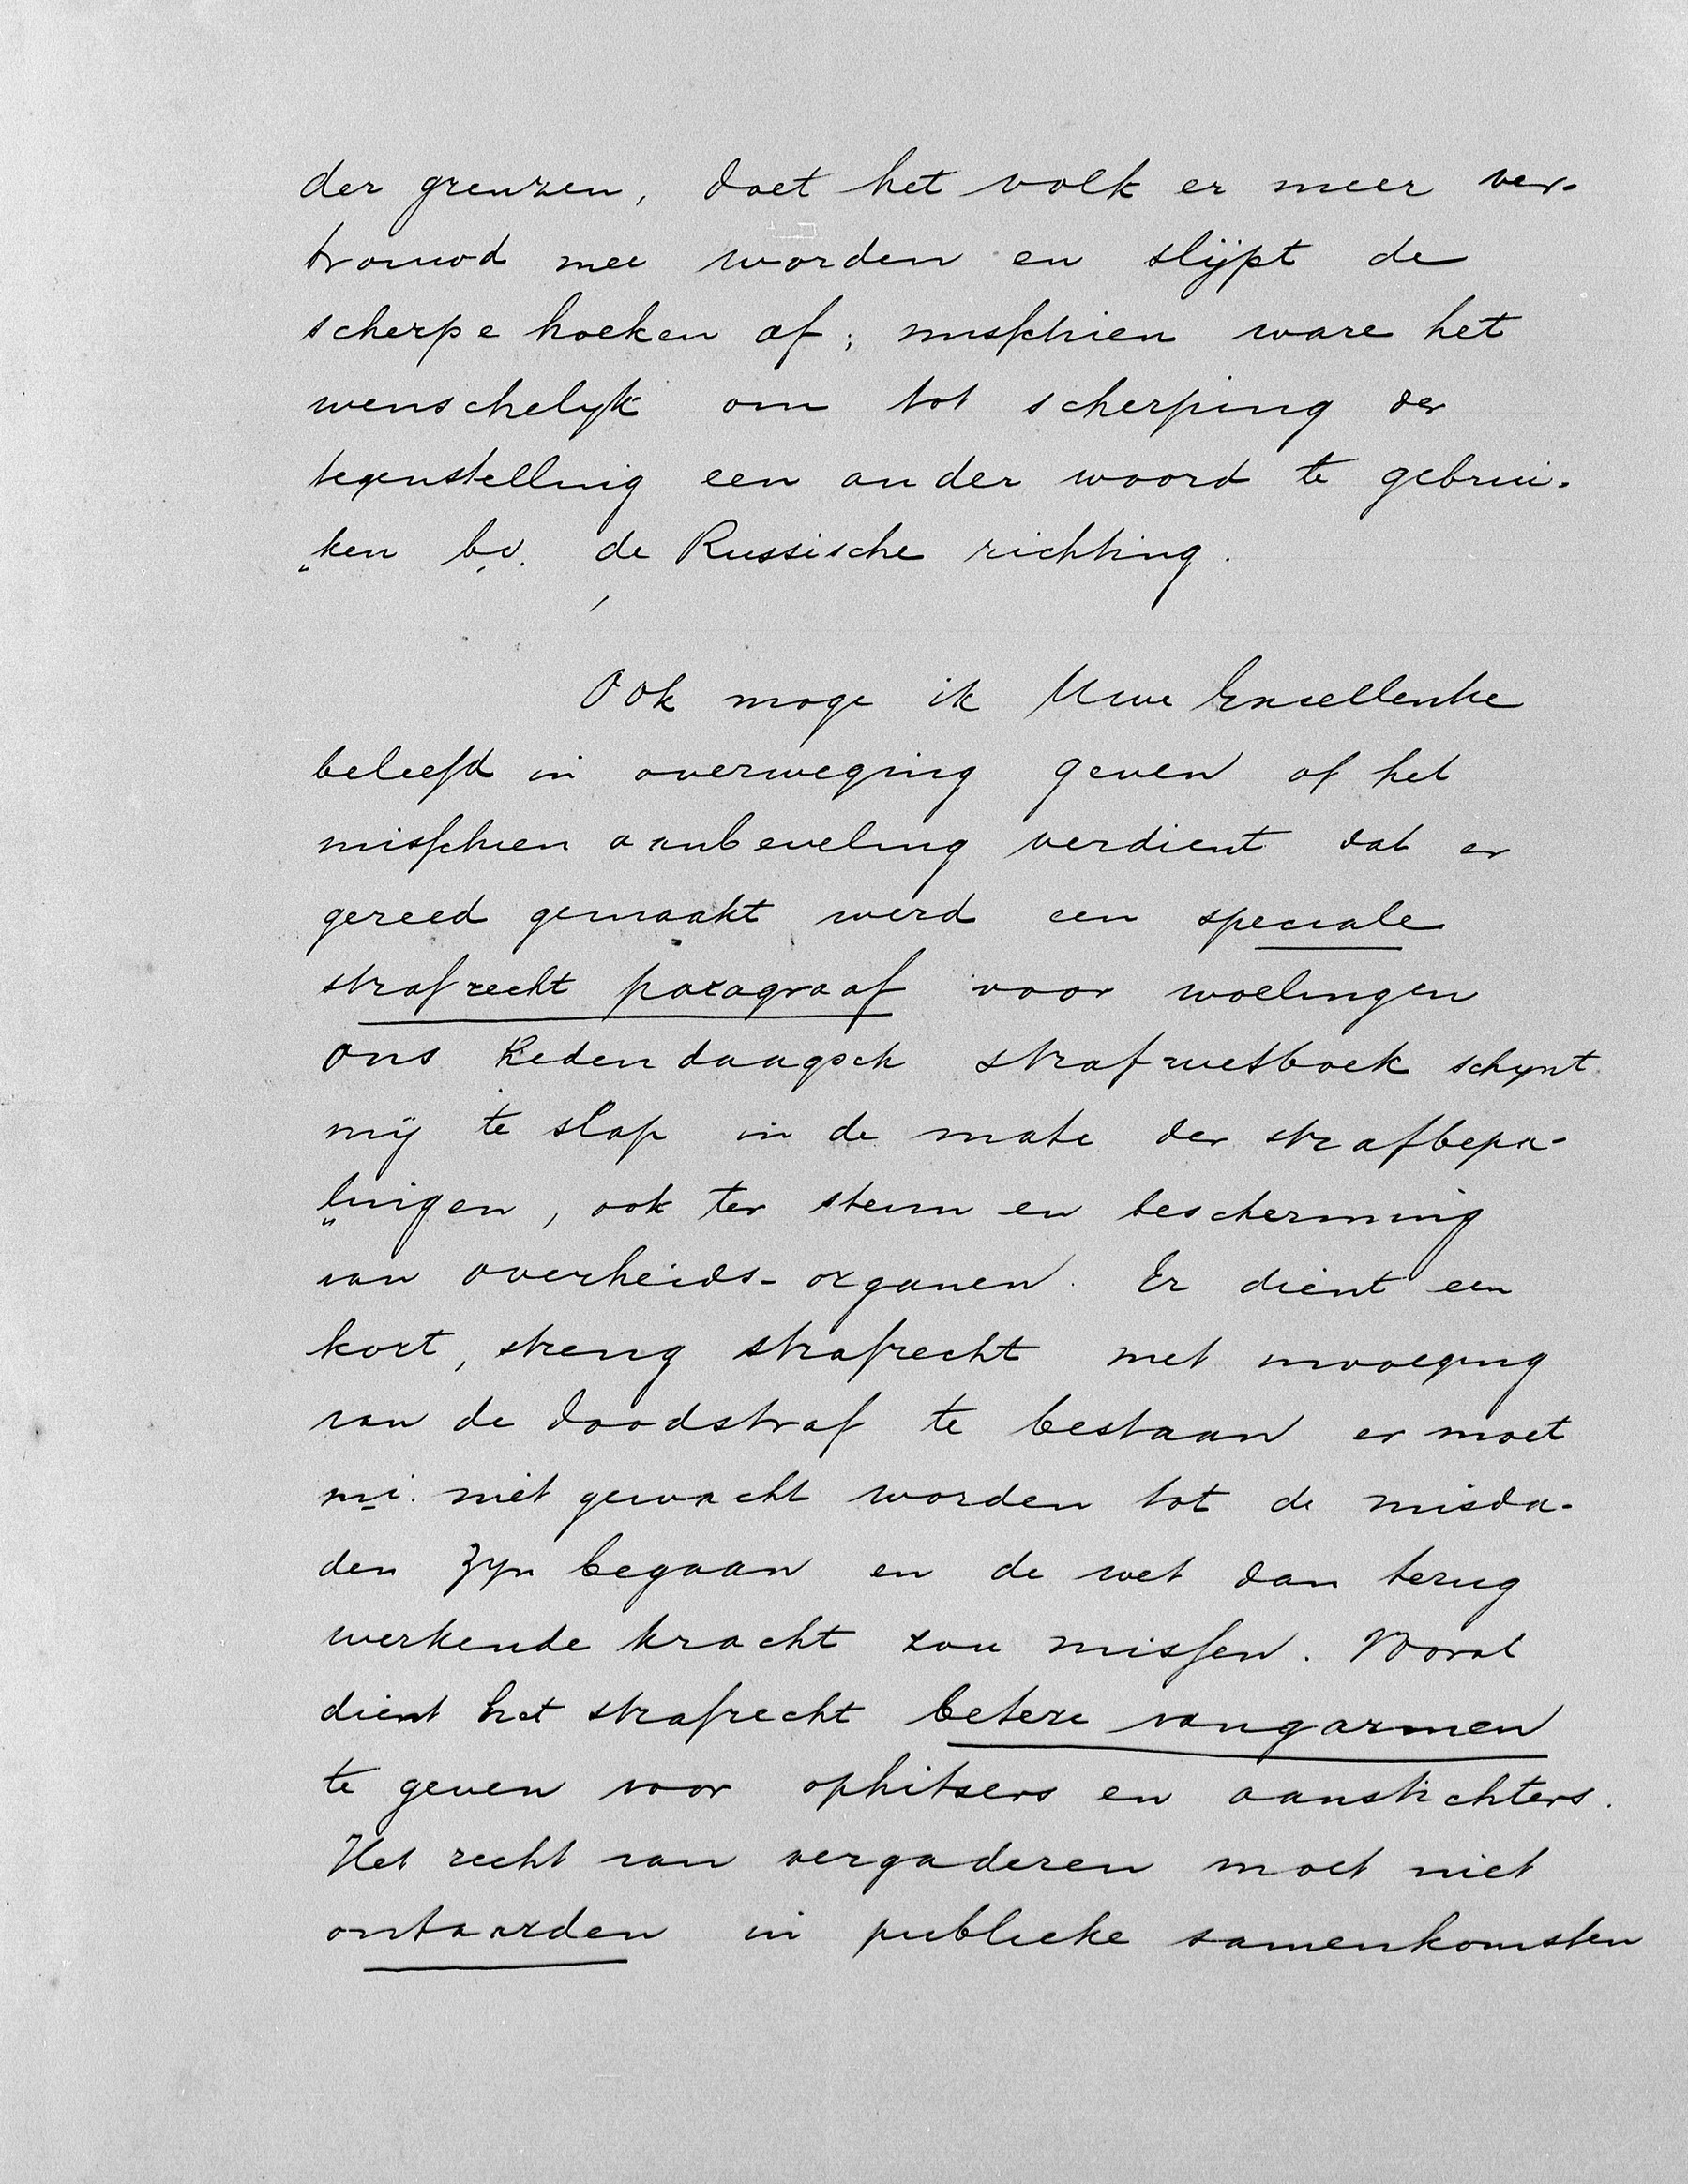 der grenzen, doet het volk er meer ver-
trouwd mee worden en slijpt de
scherpe hoeken af; misschien ware het
wenschelyk om tot scherping der
tegenstelling een ander woord te gebrui-
„ken b.v. de Russische richting.
Ook moge ik Uwe Excellentie
beleefd in overweging geven of het
misschien aanbeveling verdient dat er
gereed gemaakt werd een speciale
strafrecht paragraaf voor woelingen
ons hedendaagsch strafwetboek schynt
mij te slap in de mate der strafbepa-
„lingen, ook ter steun en bescherming
van overheids-organen. Er dient een
kort, streng strafrecht met invoeging
van de doodstraf te bestaan er moet
m.i. niet gewacht worden tot de misda-
den zyn begaan en de wet dan terug
werkende kracht zou missen. Vooral
dient het strafrecht betere vangarmen
te geven voor ophitsers en aanstichters.
Het recht van vergaderen moet niet
ontaarden in publieke samenkomsten